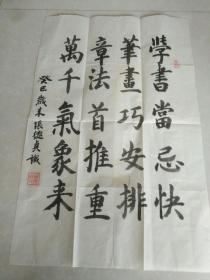 學書當忌快
筆畫巧安排
章法首推重
萬千氣象来
癸巳歲末張德貞識